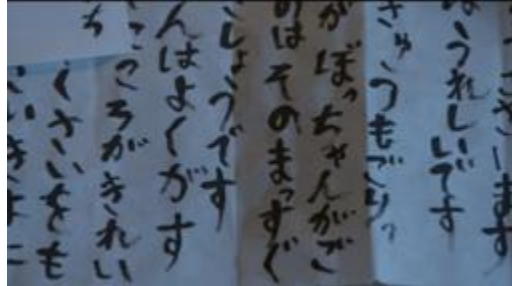 ございます
うれしいです
がぼっちゃんがご
のはそのまっすぐ
しょうです
んはよくがす
こころがきれい
くさいをも